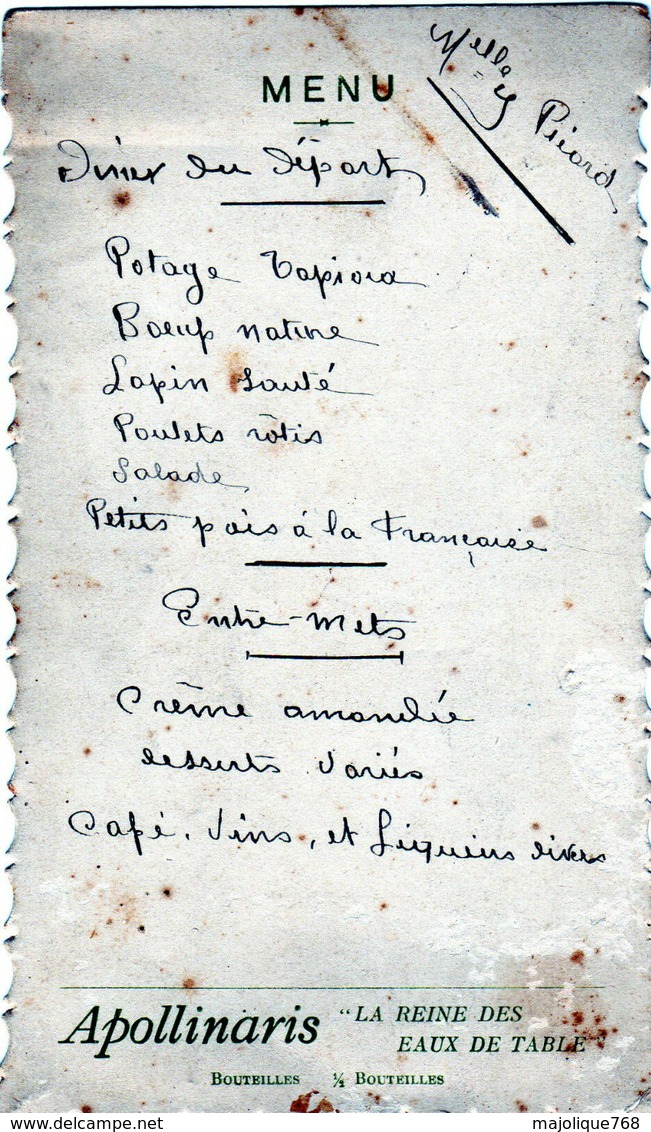 MENU
Melle Picard
Dîner du Départ
Potage Tapioca
Boeuf nature
Lapin sauté
Poulets rôtis
Salade
Petits pois à la Française
Entre-Mets
Crème amandée
desserts variés
Café, Vins, et Liqueurs divers
Apollinaris "LA REINE DES
EAUX DE TABLE"
BOUTEILLES ½ BOUTEILLES
majolique768